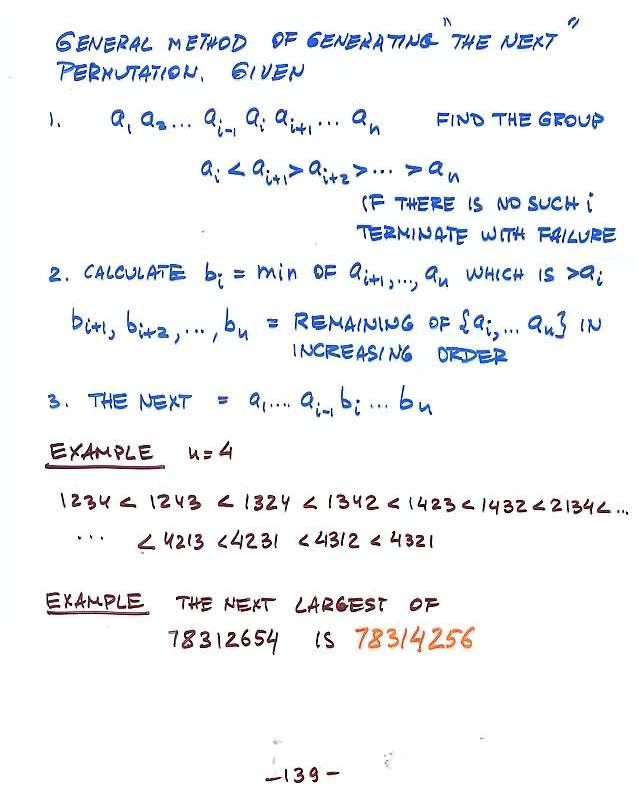 GENERAL METHOD OF GENERATING "THE NEXT"
PERMUTATION, GIVEN
1. a₁ a₂ ... aᵢ₋₁ aᵢ aᵢ₊₁ ... aₙ FIND THE GROUP
aᵢ < aᵢ₊₁ > aᵢ₊₂ > ... > aₙ
IF THERE IS NO SUCH i
TERMINATE WITH FAILURE
2. CALCULATE bᵢ = min OF aᵢ₊₁, ..., aₙ WHICH IS > aᵢ
bᵢ₊₁, bᵢ₊₂, ..., bₙ = REMAINING OF {aᵢ, ... aₙ} IN
INCREASING ORDER
3. THE NEXT = a₁ .... aᵢ₋₁ bᵢ ... bₙ
EXAMPLE n=4
1234 < 1243 < 1324 < 1342 < 1423 < 1432 < 2134 < ...
... < 4213 < 4231 < 4312 < 4321
EXAMPLE THE NEXT LARGEST OF
78312654 IS 78314256
-139-